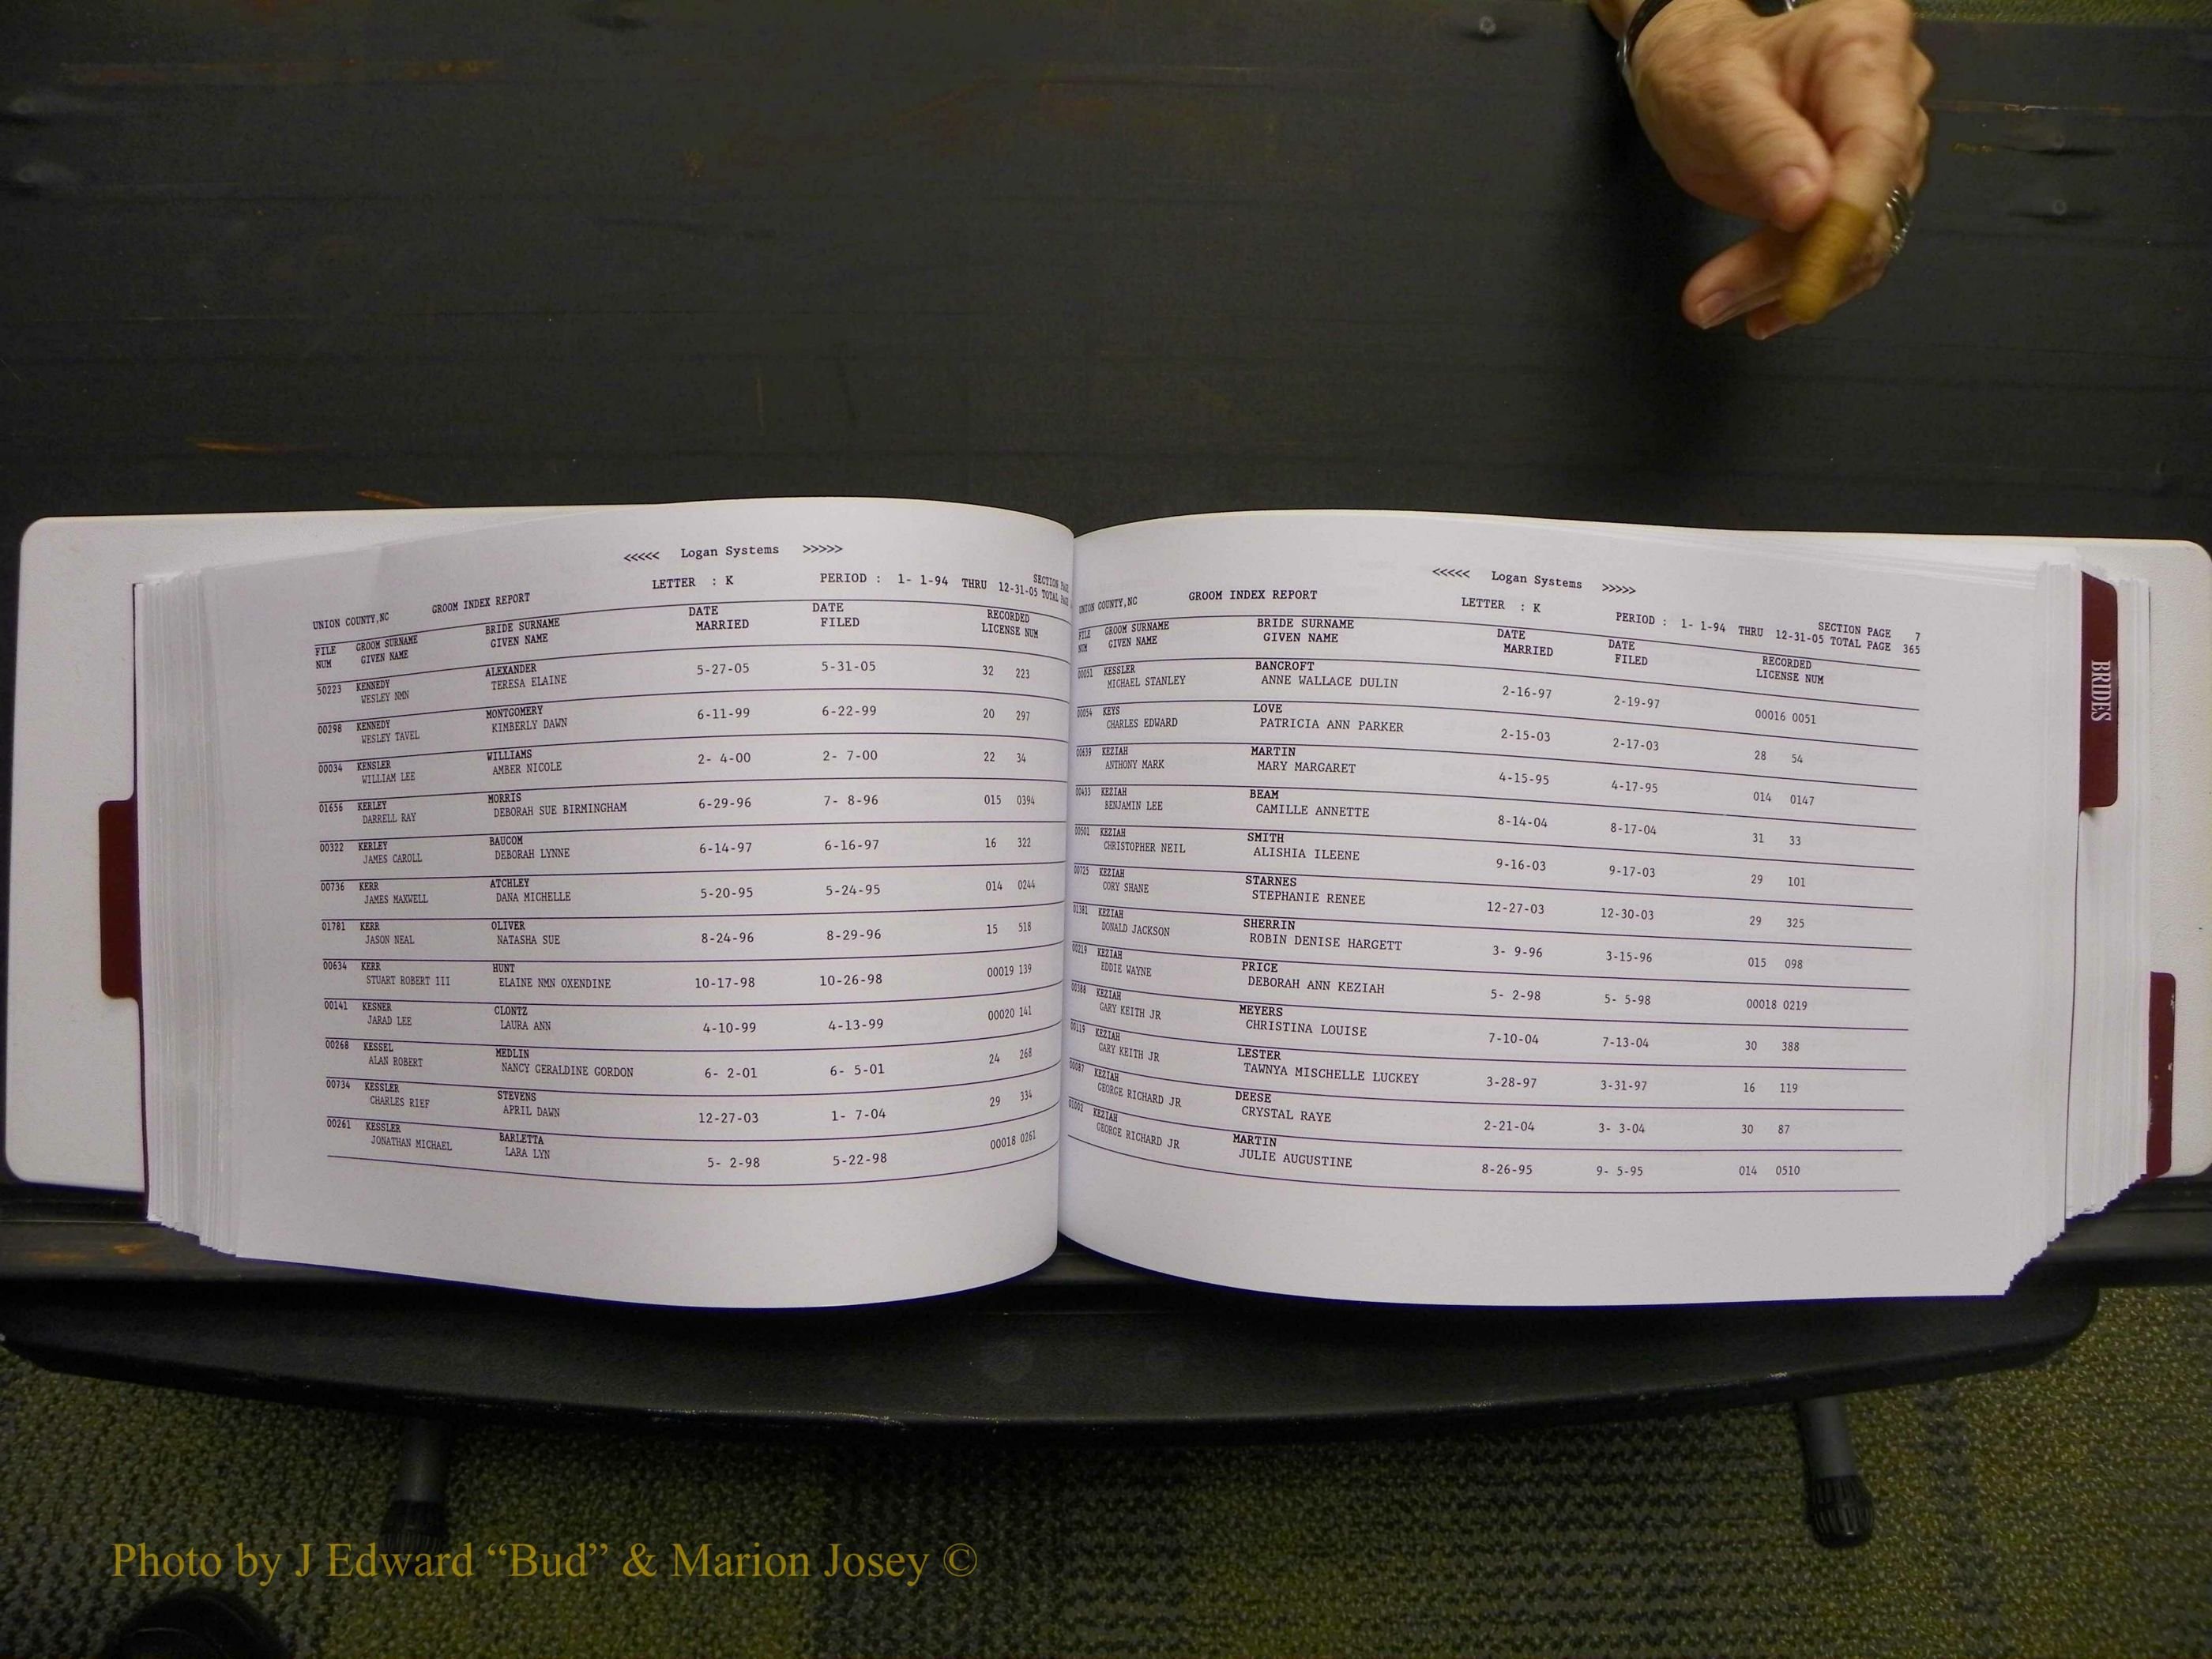 <<<<< Logan Systems >>>>>
UNION COUNTY,NC GROOM INDEX REPORT LETTER : K PERIOD : 1- 1-94 THRU 12-31-05 SECTION PAGE
TOTAL
FILE NUM GROOM SURNAME GIVEN NAME BRIDE SURNAME GIVEN NAME DATE MARRIED DATE FILED RECORDED LICENSE NUM
50223 KENNEDY ALEXANDER 5-27-05 5-31-05 32 223
WESLEY NMN TERESA ELAINE
00298 KENNEDY MONTGOMERY 6-11-99 6-22-99 20 297
WESLEY TAVEL KIMBERLY DAWN
00034 KENSLER WILLIAMS 2- 4-00 2- 7-00 22 34
WILLIAM LEE AMBER NICOLE
01656 KERLEY MORRIS 6-29-96 7- 8-96 015 0394
DARRELL RAY DEBORAH SUE BIRMINGHAM
00322 KERLEY BAUCOM 6-14-97 6-16-97 16 322
JAMES CAROLL DEBORAH LYNNE
00736 KERR ATCHLEY 5-20-95 5-24-95 014 0244
JAMES MAXWELL DANA MICHELLE
01781 KERR OLIVER 8-24-96 8-29-96 15 518
JASON NEAL NATASHA SUE
00634 KERR HUNT 10-17-98 10-26-98 00019 139
STUART ROBERT III ELAINE NMN OXENDINE
00141 KESNER CLONTZ 4-10-99 4-13-99 00020 141
JARAD LEE LAURA ANN
00268 KESSEL MEDLIN 6- 2-01 6- 5-01 24 268
ALAN ROBERT NANCY GERALDINE GORDON
00734 KESSLER STEVENS 12-27-03 1- 7-04 29 334
CHARLES RIEF APRIL DAWN
00261 KESSLER BARLETTA 5- 2-98 5-22-98 00018 0261
JONATHAN MICHAEL LARA LYN
<<<<< Logan Systems >>>>>
UNION COUNTY,NC GROOM INDEX REPORT LETTER : K PERIOD : 1- 1-94 THRU 12-31-05 SECTION PAGE 7
TOTAL PAGE 365
FILE NUM GROOM SURNAME GIVEN NAME BRIDE SURNAME GIVEN NAME DATE MARRIED DATE FILED RECORDED LICENSE NUM
00051 KESSLER BANCROFT 2-16-97 2-19-97 00016 0051
MICHAEL STANLEY ANNE WALLACE DULIN
00054 KEYS LOVE 2-15-03 2-17-03 28 54
CHARLES EDWARD PATRICIA ANN PARKER
00639 KEZIAH MARTIN 4-15-95 4-17-95 014 0147
ANTHONY MARK MARY MARGARET
00433 KEZIAH BEAM 8-14-04 8-17-04 31 33
BENJAMIN LEE CAMILLE ANNETTE
00501 KEZIAH SMITH 9-16-03 9-17-03 29 101
CHRISTOPHER NEIL ALISHIA ILEENE
00725 KEZIAH STARNES 12-27-03 12-30-03 29 325
CORY SHANE STEPHANIE RENEE
01381 KEZIAH SHERRIN 3- 9-96 3-15-96 015 098
DONALD JACKSON ROBIN DENISE HARGETT
00219 KEZIAH PRICE 5- 2-98 5- 5-98 00018 0219
EDDIE WAYNE DEBORAH ANN KEZIAH
00388 KEZIAH MEYERS 7-10-04 7-13-04 30 388
GARY KEITH JR CHRISTINA LOUISE
00119 KEZIAH LESTER 3-28-97 3-31-97 16 119
GARY KEITH JR TAWNYA MISCHELLE LUCKEY
00087 KEZIAH DEESE 2-21-04 3- 3-04 30 87
GEORGE RICHARD JR CRYSTAL RAYE
01002 KEZIAH MARTIN 8-26-95 9- 5-95 014 0510
GEORGE RICHARD JR JULIE AUGUSTINE
BRIDES
Photo by J Edward “Bud” & Marion Josey ©